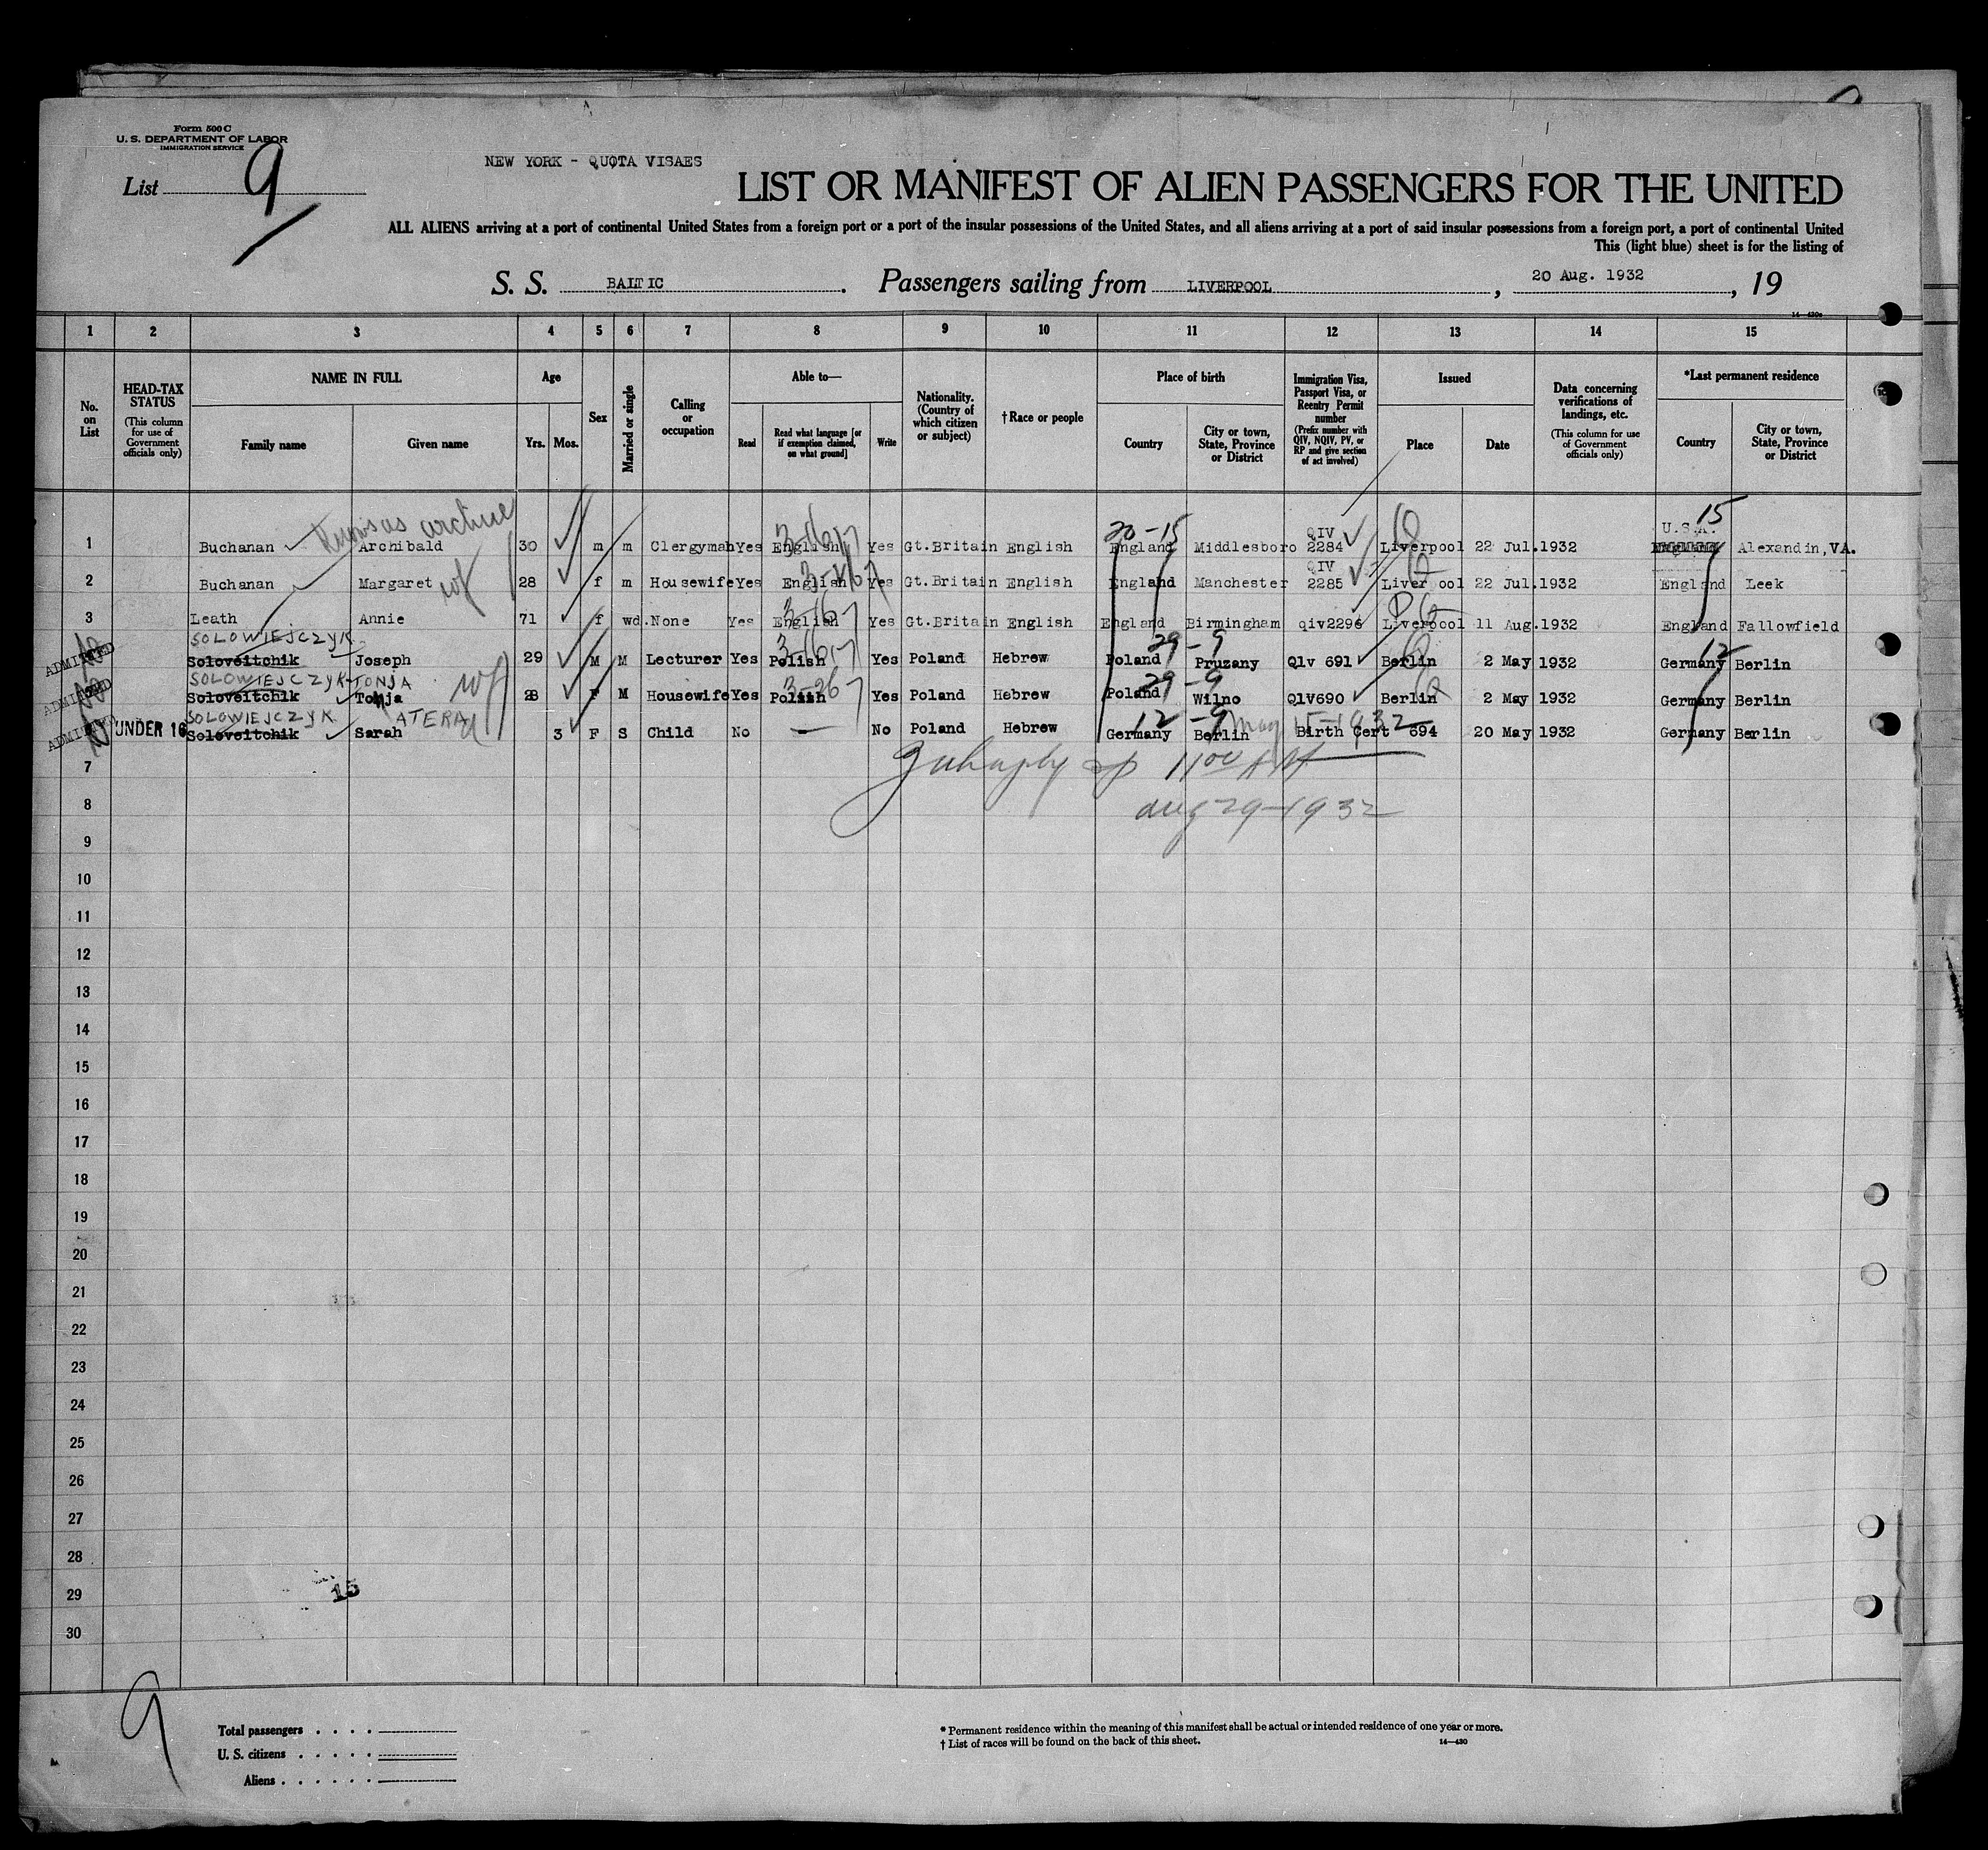 Form 500 C
U. S. DEPARTMENT OF LABOR
IMMIGRATION SERVICE
List 9
NEW YORK - QUOTA VISAES
LIST OR MANIFEST OF ALIEN PASSENGERS FOR THE UNITED
ALL ALIENS arriving at a port of continental United States from a foreign port or a port of the insular possessions of the United States, and all aliens arriving at a port of said insular possessions from a foreign port, a port of continental United
This (light blue) sheet is for the listing of
S. S. BALTIC. Passengers sailing from LIVERPOOL, 20 Aug. 1932, 19
14—430
1 2 3 4 5 6 7 8 9 10 11 12 13 14 15
No. on List
HEAD-TAX STATUS (This column for use of Government officials only)
NAME IN FULL
Family name Given name
Age
Yrs. Mos.
Sex
Married or single
Calling or occupation
Able to—
Read Read what language [or if exemption claimed, on what ground] Write
Nationality. (Country of which citizen or subject)
† Race or people
Place of birth
Country City or town, State, Province or District
Immigration Visa, Passport Visa, or Reentry Permit number (Prefix number with QIV, NQIV, PV, or RP and give section of act involved)
Issued
Place Date
Data concerning verifications of landings, etc. (This column for use of Government officials only)
*Last permanent residence
Country City or town, State, Province or District
20-15 QIV U.S.A. 15
1 Buchanan Archibald 30 m m Clergyman Yes English Yes Gt.Britain English England Middlesboro 2284 Liverpool 22 Jul.1932 Alexandin,VA.
QIV
2 Buchanan Margaret wf 28 f m Housewife Yes English Yes Gt.Britain English England Manchester 2285 Liver ool 22 Jul.1932 England Leek
3 Leath Annie 71 f wd. None Yes English Yes Gt.Britain English England Birmingham qiv2296 Liverpool 11 Aug.1932 England Fallowfield
SOLOWIEJCZYK 29-9 12
ADMITTED Soloveitchik Joseph 29 M M Lecturer Yes Polish Yes Poland Hebrew Poland Pruzany Qiv 691 Berlin 2 May 1932 Germany Berlin
SOLOWIEJCZYK TONJA wf 29-9
ADMITTED Soloveitchik Tonja 28 F M Housewife Yes Polish Yes Poland Hebrew Poland Wilno QIV690 Berlin 2 May 1932 Germany Berlin
SOLOWIEJCZYK ATERA 12-9 May 15-1932
ADMITTED UNDER 16 Soloveitchik Sarah 3 F S Child No — No Poland Hebrew Germany Berlin Birth Cert 694 20 May 1932 Germany Berlin
7 11 00 AM
8 aug 29-1932
9
10
11
12
13
14
15
16
17
18
19
20
21
22
23
24
25
26
27
28
29 15
30
9
Total passengers . . . .
U. S. citizens . . . . .
Aliens . . . . . .
* Permanent residence within the meaning of this manifest shall be actual or intended residence of one year or more.
† List of races will be found on the back of this sheet.
14—430